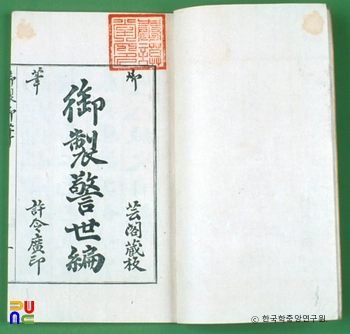 御
筆
御製警世編
芸閣藏板
許令廣印
PUNC
© 한국학중앙연구원